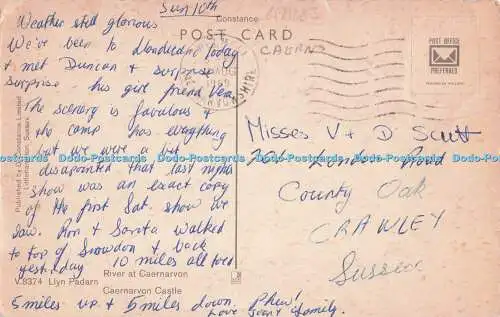 Sun 10th
Weather still glorious
We've been to Llandudno today
& met Duncan & surprise
surprise his girl friend Vera.
The scenery is fabulous &
the camp has everything
but we were a bit
disapointed that last nights
show was an exact copy
of the first Sat. show we
saw. Ron & Sarita walked
to top of Snowdon & back
yesterday 10 miles all told
5 miles up & 5 miles down. Phew!
Love Scott family.
Constance
POST CARD
CAERNS
POST OFFICE
PREFERRED
Misses V + D Scott
206 London Road
County Oak
CRAWLEY
Sussex
Published by
Limited
Sussex
River at Caernarvon
V.8374 Llyn Padarn
Caernarvon Castle
Dodo-Postcards Dodo-Postcards Dodo-Postcards Dodo-Postcards Dodo-Postcards